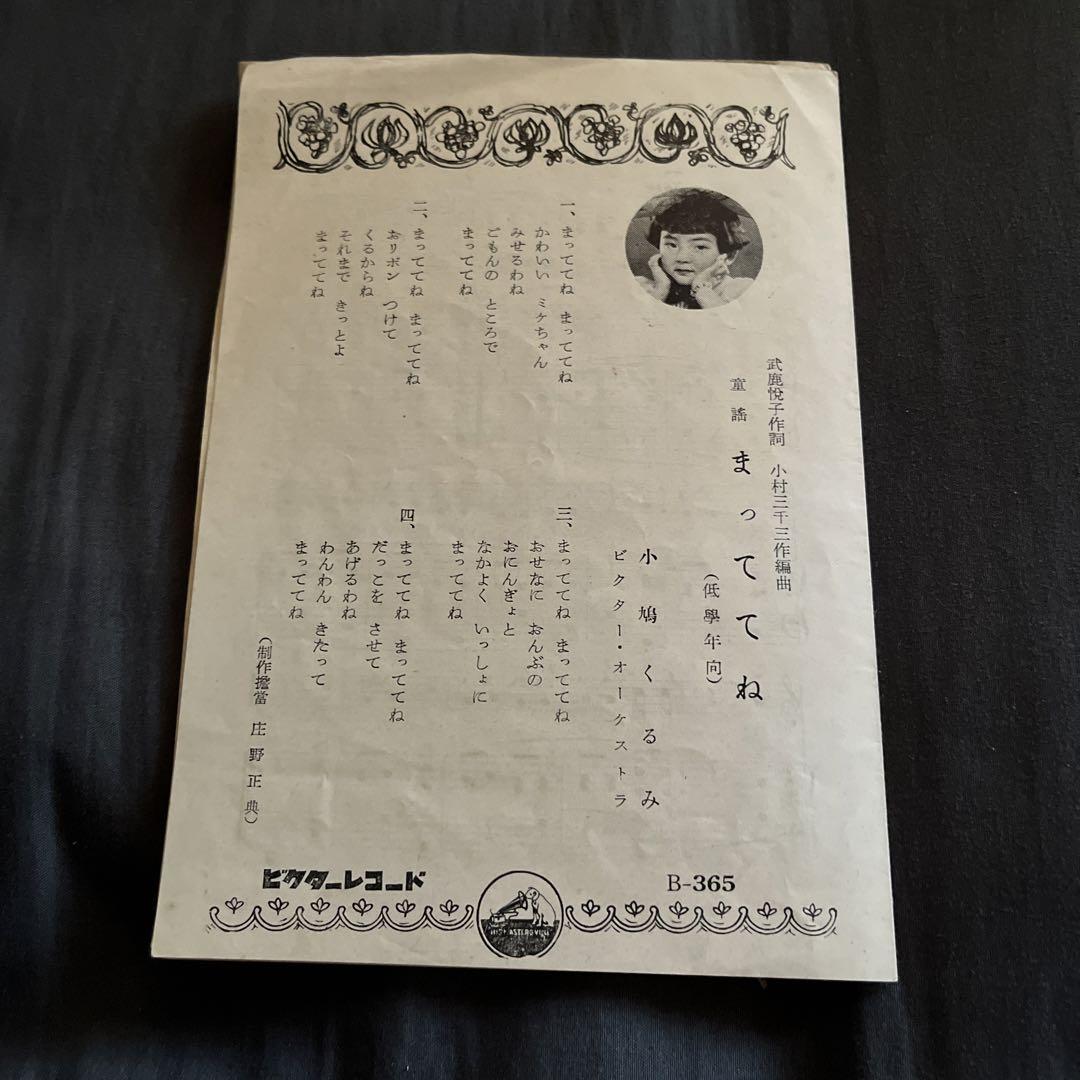 武鹿悦子作詞　小村三千三作編曲
童謠　まっててね
（低學年向）
小鳩くるみ
ビクター・オーケストラ
一、まっててね　まっててね
かわいい　ミケちゃん
みせるわね
ごもんの　ところで
まっててね
二、まっててね　まっててね
おリボン　つけて
くるからね
それまで　きっとよ
まっててね
三、まっててね　まっててね
おせなに　おんぶの
おにんぎょと
なかよく　いっしょに
まっててね
四、まっててね　まっててね
だっこを　させて
あげるわね
わんわん　きたって
まっててね
（制作擔當　庄野正典）
ビクターレコード
HIS MASTERS VOICE
B-365